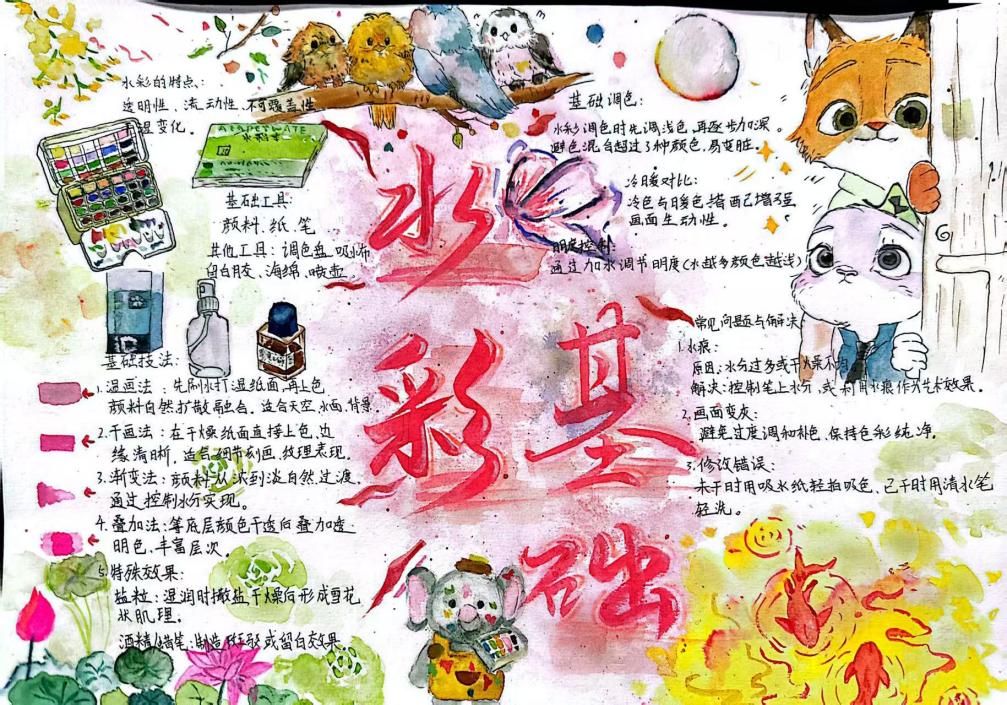 水彩的特点:
透明性、流动性、不可覆盖性
变化。
基础工具:
颜料 纸 笔
其他工具:调色盘 吸水布
留白胶、海绵、喷壶。
基础技法:
1.湿画法:先刷水打湿纸面,再上色
颜料自然扩散融合。适合天空、水面、背景.
2.干画法:在干燥纸面直接上色,边
缘清晰,适合细节刻画,纹理表现。
3.渐变法:颜料从浓到淡自然过渡,
通过控制水分实现。
4.叠加法:等底层颜色干透后叠加透
明色,丰富层次。
5.特殊效果:
盐粒:湿润时撒盐干燥后形成雪花
状肌理。
酒精/蜡笔:制造 或留白效果。
水
彩
基
础
基础调色:
水彩调色时先调浅色,再逐步加深。
避免混合超过3种颜色,易变脏。
冷暖对比:
冷色与暖色搭配已增强
画面生动性。
明度控制:
通过加水调节明度(水越多颜色越浅)
常见问题与解决
1.水痕:
原因:水分过多或干燥不
解决:控制笔上水分,或利用水痕作艺术效果。
2.画面变灰:
避免过度调和补色,保持色彩纯净。
3.修改错误:
未干时用吸水纸轻拍吸色,已干时用清水笔
轻洗。